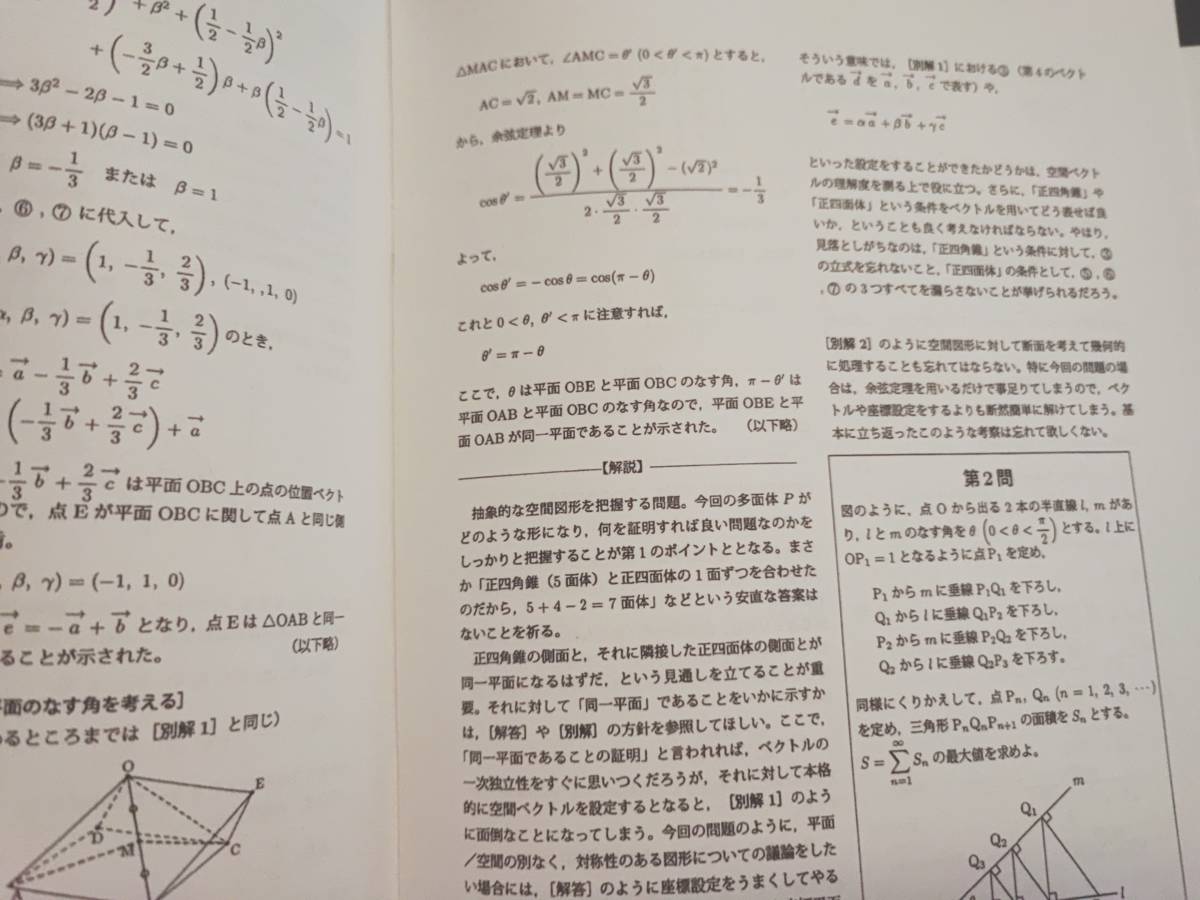 + β² + (1/2 − 1/2 β)²
+ (−3/2 β + 1/2) β + β (1/2 − 1/2 β) = 1
⟹ 3β² − 2β − 1 = 0
⟹ (3β + 1)(β − 1) = 0
β = −1/3 または β = 1
, ⑥, ⑦ に代入して,
β, γ) = (1, −1/3, 2/3), (−1, ,1, 0)
, β, γ) = (1, −1/3, 2/3) のとき,
= a→ − 1/3 b→ + 2/3 c→
(−1/3 b→ + 2/3 c→) + a→
−1/3 b→ + 2/3 c→ は平面 OBC 上の点の位置ベクト
ので, 点 E が平面 OBC に関して点 A と同じ側
, β, γ) = (−1, 1, 0)
e→ = −a→ + b→ となり, 点 E は △OAB と同一
ることが示された。 (以下略)
平面のなす角を考える]
るところまでは [別解1] と同じ)
O
E
D
M
C
△MAC において, ∠AMC = θ′ (0 < θ′ < π) とすると,
AC = √2, AM = MC = √3/2
から, 余弦定理より
cos θ′ = ((√3/2)² + (√3/2)² − (√2)²)/(2 · √3/2 · √3/2) = −1/3
よって,
cos θ′ = − cos θ = cos(π − θ)
これと 0 < θ, θ′ < π に注意すれば,
θ′ = π − θ
ここで, θ は平面 OBE と平面 OBC のなす角, π − θ′ は
平面 OAB と平面 OBC のなす角なので, 平面 OBE と平
面 OAB が同一平面であることが示された。 (以下略)
【解説】
抽象的な空間図形を把握する問題。今回の多面体 P が
どのような形になり, 何を証明すれば良い問題なのかを
しっかりと把握することが第1のポイントととなる。まさ
か「正四角錐(5面体)と正四面体の1面ずつを合わせた
のだから, 5+4−2=7 面体」などという安直な答案は
ないことを祈る。
正四角錐の側面と, それに隣接した正四面体の側面とが
同一平面になるはずだ, という見通しを立てることが重
要。それに対して「同一平面」であることをいかに示すか
は, [解答] や [別解] の方針を参照してほしい。ここで,
「同一平面であることの証明」と言われれば, ベクトルの
一次独立性をすぐに思いつくだろうが, それに対して本格
的に空間ベクトルを設定するとなると, [別解1] のよう
に面倒なことになってしまう。今回の問題のように, 平面
/空間の別なく, 対称性のある図形についての議論をした
い場合には, [解答] のように座標設定をうまくしてやる
そういう意味では, [別解1] における③ (第4のベクト
ルである d→ を a→, b→, c→ で表す) や,
e→ = αa→ + βb→ + γc→
といった設定をすることができたかどうかは, 空間ベクト
ルの理解度を測る上で役に立つ。さらに, 「正四角錐」や
「正四面体」という条件をベクトルを用いてどう表せば良
いか, ということも良く考えなければならない。やはり,
見落としがちなのは, 「正四角錐」という条件に対して, ③
の立式を忘れないこと, 「正四面体」の条件として, ⑤, ⑥
, ⑦ の3つすべてを漏らさないことが挙げられるだろう。
[別解2] のように空間図形に対して断面を考えて幾何的
に処理することも忘れてはならない。特に今回の問題の場
合は, 余弦定理を用いるだけで事足りてしまうので, ベク
トルや座標設定をするよりも断然簡単に解けてしまう。基
本に立ち返ったこのような考察は忘れて欲しくない。
第2問
図のように, 点 O から出る 2 本の半直線 l, m があ
り, l と m のなす角を θ (0 < θ < π/2) とする。l 上に
OP₁ = 1 となるように点 P₁ を定め,
P₁ から m に垂線 P₁Q₁ を下ろし,
Q₁ から l に垂線 Q₁P₂ を下ろし,
P₂ から m に垂線 P₂Q₂ を下ろし,
Q₂ から l に垂線 Q₂P₃ を下ろす。
同様にくりかえして, 点 Pₙ, Qₙ (n = 1, 2, 3, ⋯)
を定め, 三角形 PₙQₙPₙ₊₁ の面積を Sₙ とする。
S = ∑_{n=1}^{∞} Sₙ の最大値を求めよ。
m
Q₁
Q₂
Q₃
l